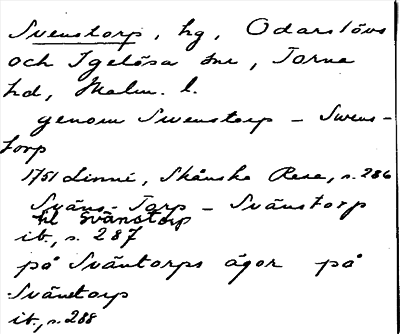 Svenstorp, hg, Odarslövs
och Igelösa snr, Torna
hd, Malm. l.
genom Swenstorp – Swens-
torp
1751 Linné, Skånska Resa, s. 286
Sväns-Torp – Svänstorp
til Svänstorp
ib., s. 287
på Sväntorps ägor på
Sväntorp
ib., s. 288